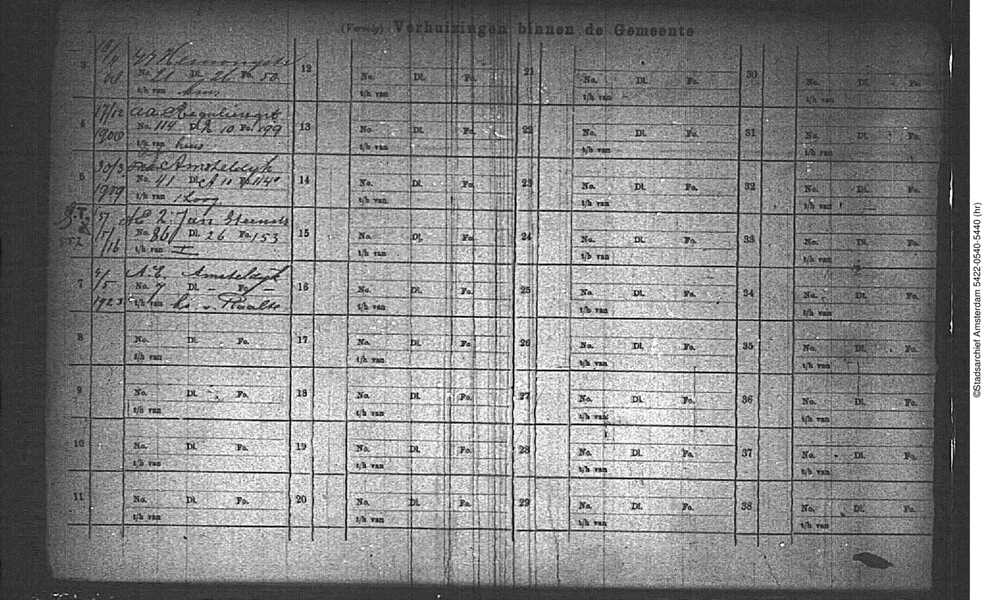 (Vervolg) Verhuizingen binnen de Gemeente
3
No. 21 Dl. 26 Fo. 50
t/h van huis
4 17/12 1900 AA
No. 114 Dl. 10 Fo. 199
t/h van huis
5 30/3 1909 Amsteldijk
No. 41 Dl. 11 Fo.
t/h van
6 5/ 16 Jan Steenstr
No. 86 Dl. 26 Fo. 153
t/h van I
7 5/5 A.E. Amsteldijk
No. 7 Dl. – Fo. –
t/h van hs – Raalte
8
No. Dl. Fo.
t/h van
9
No. Dl. Fo.
t/h van
10
No. Dl. Fo.
t/h van
11
No. Dl. Fo.
t/h van
12
No. Dl. Fo.
t/h van
13
No. Dl. Fo.
t/h van
14
No. Dl. Fo.
t/h van
15
No. Dl. Fo.
t/h van
16
No. Dl. Fo.
t/h van
17
No. Dl. Fo.
t/h van
18
No. Dl. Fo.
t/h van
19
No. Dl. Fo.
t/h van
20
No. Dl. Fo.
t/h van
21
No. Dl. Fo.
t/h van
22
No. Dl. Fo.
t/h van
23
No. Dl. Fo.
t/h van
24
No. Dl. Fo.
t/h van
25
No. Dl. Fo.
t/h van
26
No. Dl. Fo.
t/h van
27
No. Dl. Fo.
t/h van
28
No. Dl. Fo.
t/h van
29
No. Dl. Fo.
t/h van
30
No. Dl. Fo.
t/h van
31
No. Dl. Fo.
t/h van
32
No. Dl. Fo.
t/h van
33
No. Dl. Fo.
t/h van
34
No. Dl. Fo.
t/h van
35
No. Dl. Fo.
t/h van
36
No. Dl. Fo.
t/h van
37
No. Dl. Fo.
t/h van
38
No. Dl. Fo.
t/h van
©Stadsarchief Amsterdam 5422-0540-5440 (hr)